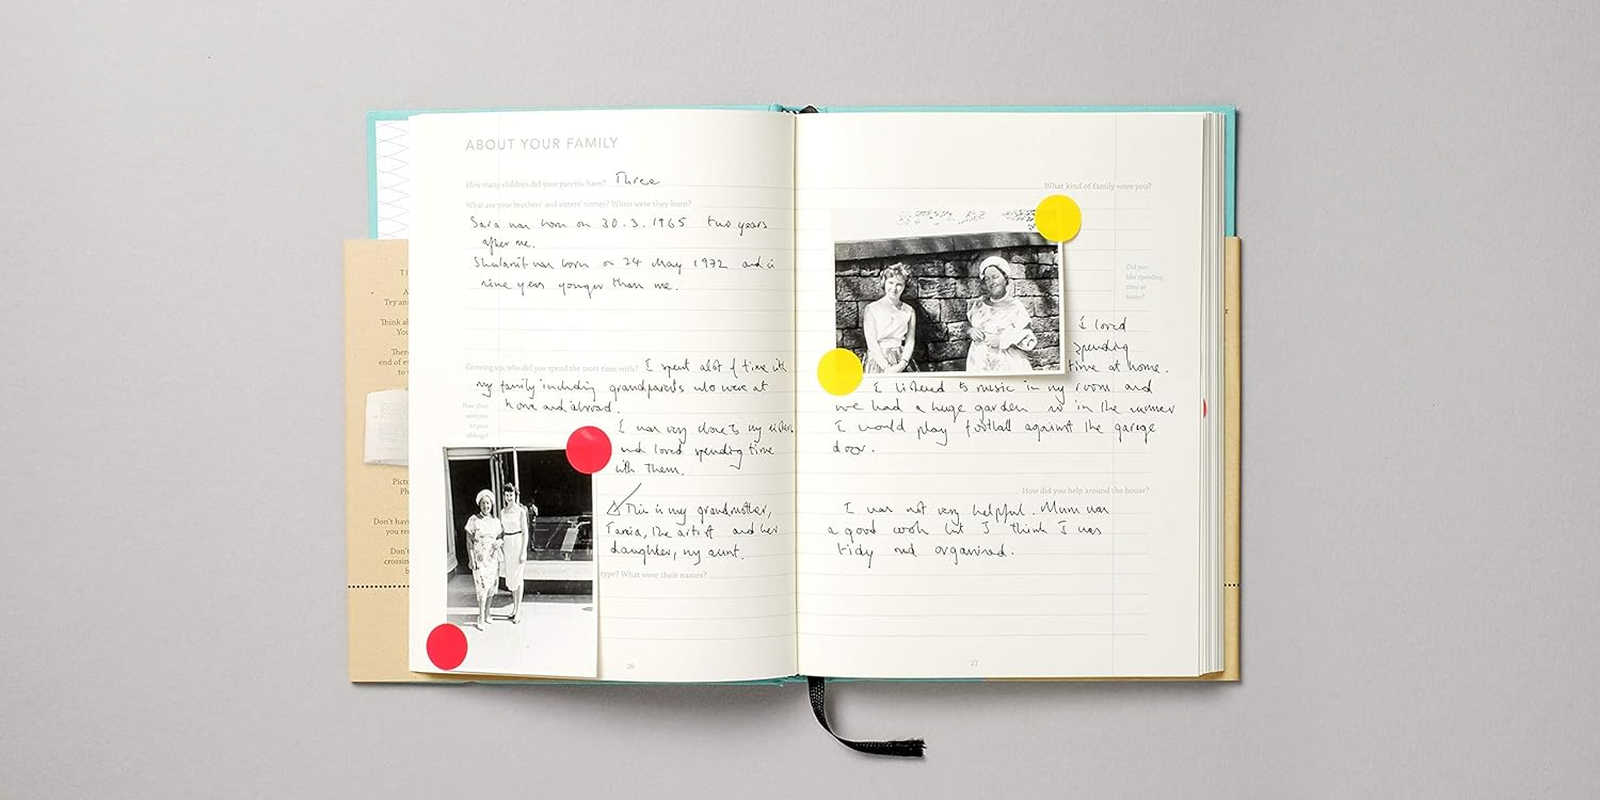 ABOUT YOUR FAMILY
How many children did your parents have? Three
What are your brothers' and sisters' names? When were they born?
Sara was born on 30.3.1965 two years
after me.
Shulamit was born on 24 May 1972 and is
nine years younger than me.
Growing up, who did you spend the most time with? I spent alot of time with
my family including grandparents who were at
home and abroad.
How close
were you
to your
siblings?
I was very close to my sisters
and loved spending time
with them.
This is my grandmother,
Tania, the artist and her
daughter, my aunt.
type? What were their names?
26
What kind of family were you?
Did you
like spending
time at
home?
I loved
spending
time at home.
I listened to music in my room and
we had a huge garden so in the summer
I would play football against the garage
door.
How did you help around the house?
I was not very helpful. Mum was
a good cook but I think I was
tidy and organised.
27
Try an
Think al
You
Ther
end of e
to
Pict
Ph
Don't hav
you re
Don't
crossin
b